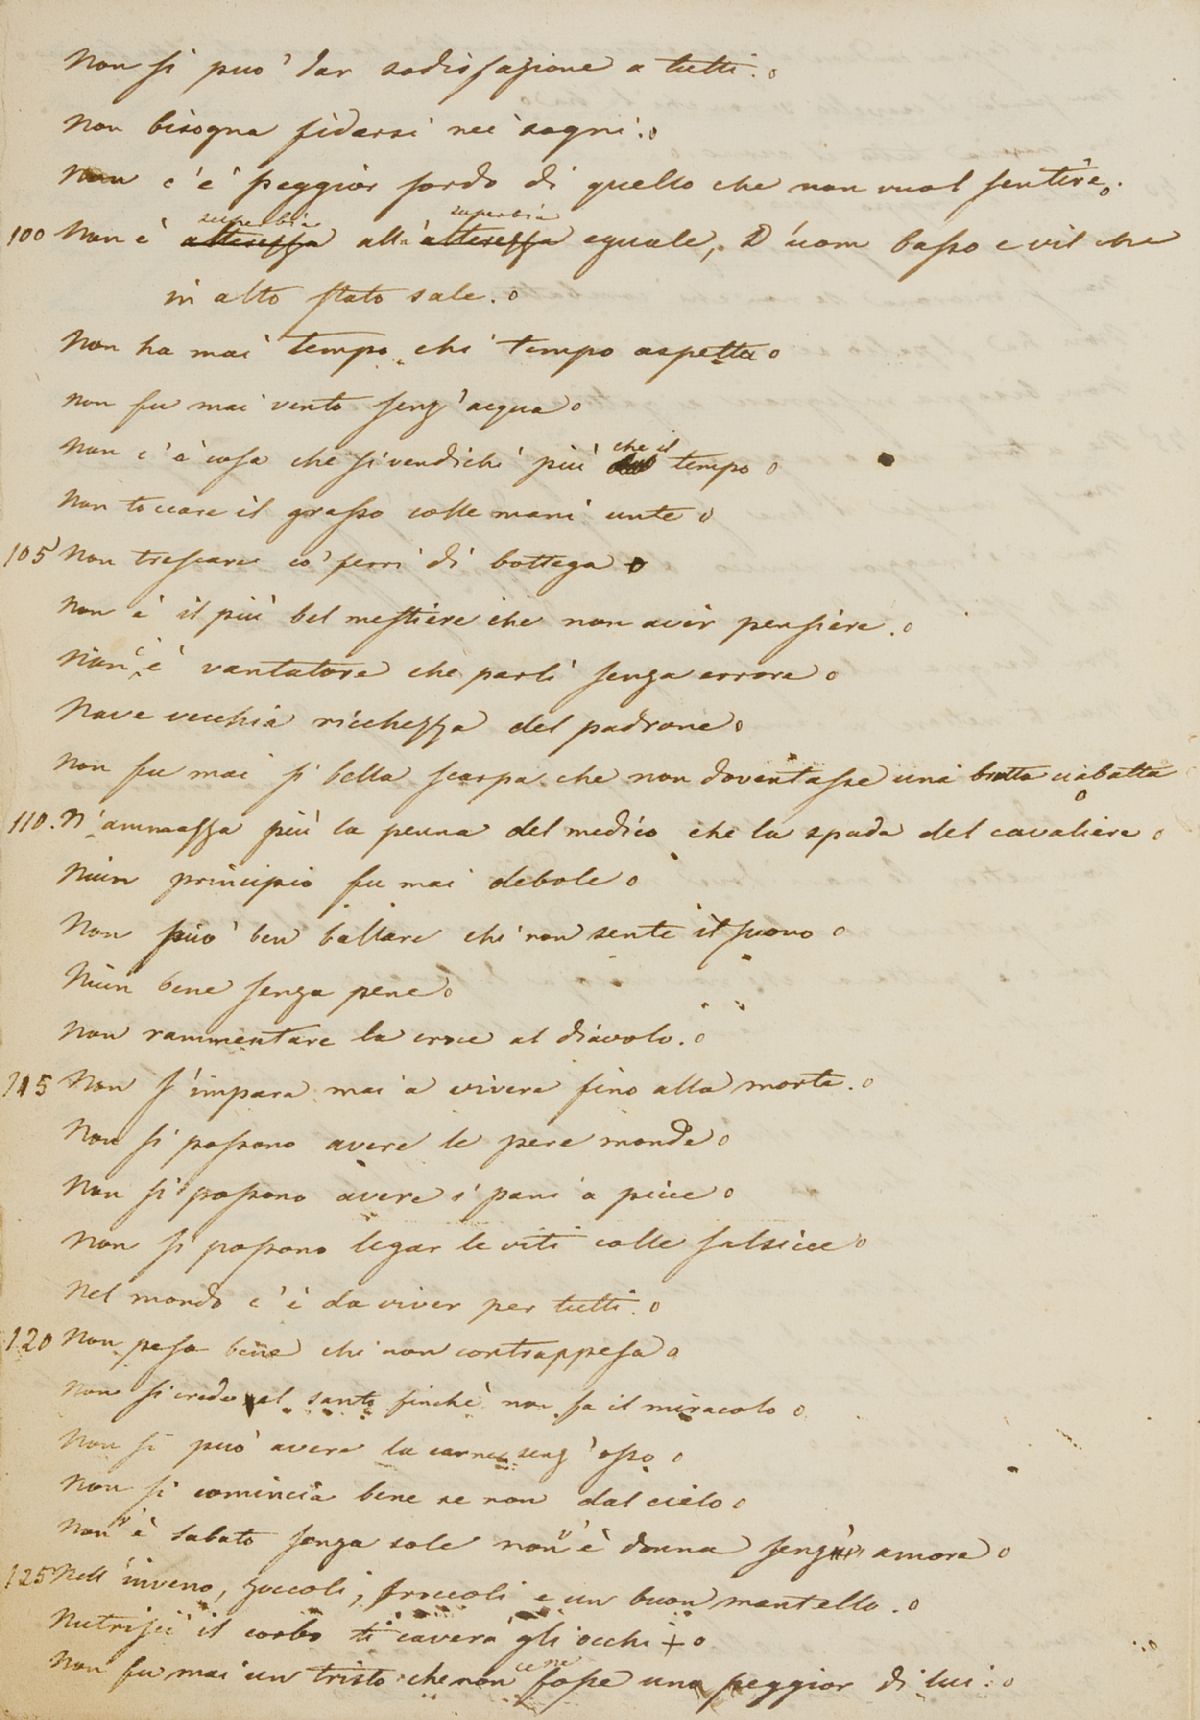 Non si può dar sodisfazione a tutti.
Non bisogna fidarsi nei sogni.
Non c'è peggior sordo di quello che non vuol sentire.
superbia superbia
100 Non è alterezza all'alterezza eguale, D'uom basso e vil che
in alto stato sale.
Non ha mai tempo chi tempo aspetta
Non fu mai vento senz'acqua
che il
Non c'è cosa che si vendichi più tempo
Non toccare il grasso colle mani unte
105 Non trescare co' ferri di bottega
Non è il più bel mestiere che non aver pensiere.
Non c'è vantatore che parli senza errore
Nave vecchia ricchezza del padrone
Non fu mai sì bella scarpa che non doventasse una brutta ciabatta
110. N'ammazza più la penna del medico che la spada del cavaliere
Niun principio fu mai debole
Non può ben ballare chi non sente il suono
Niun bene senza pene
Non rammentare la croce al diavolo.
115 Non s'impara mai a vivere fino alla morte.
Non si possono avere le pere monde
Non si possono avere i pani a picce
Non si possono legar le viti colle salsicce
Nel mondo c'è da viver per tutti.
120 Non pesa bene chi non contrappesa
Non si crede al santo finchè non fa il miracolo
Non si può avere la carne senz'osso
Non si comincia bene se non dal cielo
Non v'è sabato senza sole non v'è donna senz' amore
125 Nell'inveno, zoccoli, broccoli e un buon mantello.
Nutrisci il corbo ti caverà gli occhi +
ce ne
Non fu mai un tristo che non fosse uno peggior di lui.